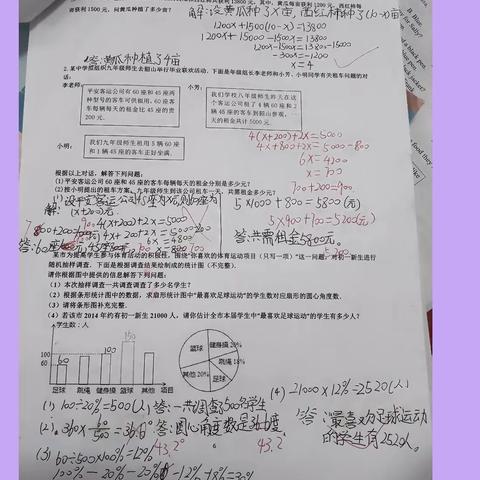 者获利1500元，问黄瓜种植了多少亩？
解：设黄瓜种了X亩，西红柿种了(10-x)亩
1200X+1500(10-x)=13800
1200X+15000-1500X=13800
1200X-1500X=13800-15000
-300X=-1200
X=4
答：黄瓜种植了4亩
2.某中学组织九年级师生去韶山举行毕业联欢活动，下面是年级组长李老师和小芳、小明同学有关租车问题的对话：
李老师：
平安客运公司有60座和45座两种型号的客车可供租用，60座客车每辆每天的租金比45座的贵200元.
小芳：
我们学校八年级师生昨天在这个客运公司租了4辆60座和2辆45座的客车到韶山参观，一天的租金共计5000元.
小明：
我们九年级师生租用5辆60座和1辆45座的客车正好坐满.
4(X+200)+2X=5000
4X+800+2X=5000-800
6X=4200
X=700
700+200=900.
根据以上对话，解答下列问题：
(1)平安客运公司60座和45座的客车每辆每天的租金分别是多少元？
(2)按小明提出的租车方案，九年级师生到该公司租车一天，共需租金多少元？
5×1000+800=5800(元)
5×900+700=5200(元)
答：共需租金5800元.
某市为提高学生参与体育活动的积极性，围绕“你喜欢的体育运动项目（只写一项）”这一问题，对初一新生进行
随机抽样调查，下面是根据调查结果绘制成的统计图（不完整）.
请你根据图中提供的信息解答下列问题：
（1）本次抽样调查一共调查了多少名学生？
（2）根据条形统计图中的数据，求扇形统计图中“最喜欢足球运动”的学生数对应扇形的圆心角度数.
（3）请将条形图补充完整.
（4）若该市2014年约有初一新生21000人，请你估计全市本届学生中“最喜欢足球运动”的学生有多少人？
学生数：人
100
60
60
100
150
足球 跳绳 健身操 篮球 其他 项目
篮球
健身操20%
跳绳18%
其他20%
足球
(4) 21000×12%=2520(人)
答：最喜欢足球运动
的学生有2520人.
(1) 100÷20%=500(人)
答：一共调查了500名学生
43.2°
43.2°
(3) 60÷500×100%=12%